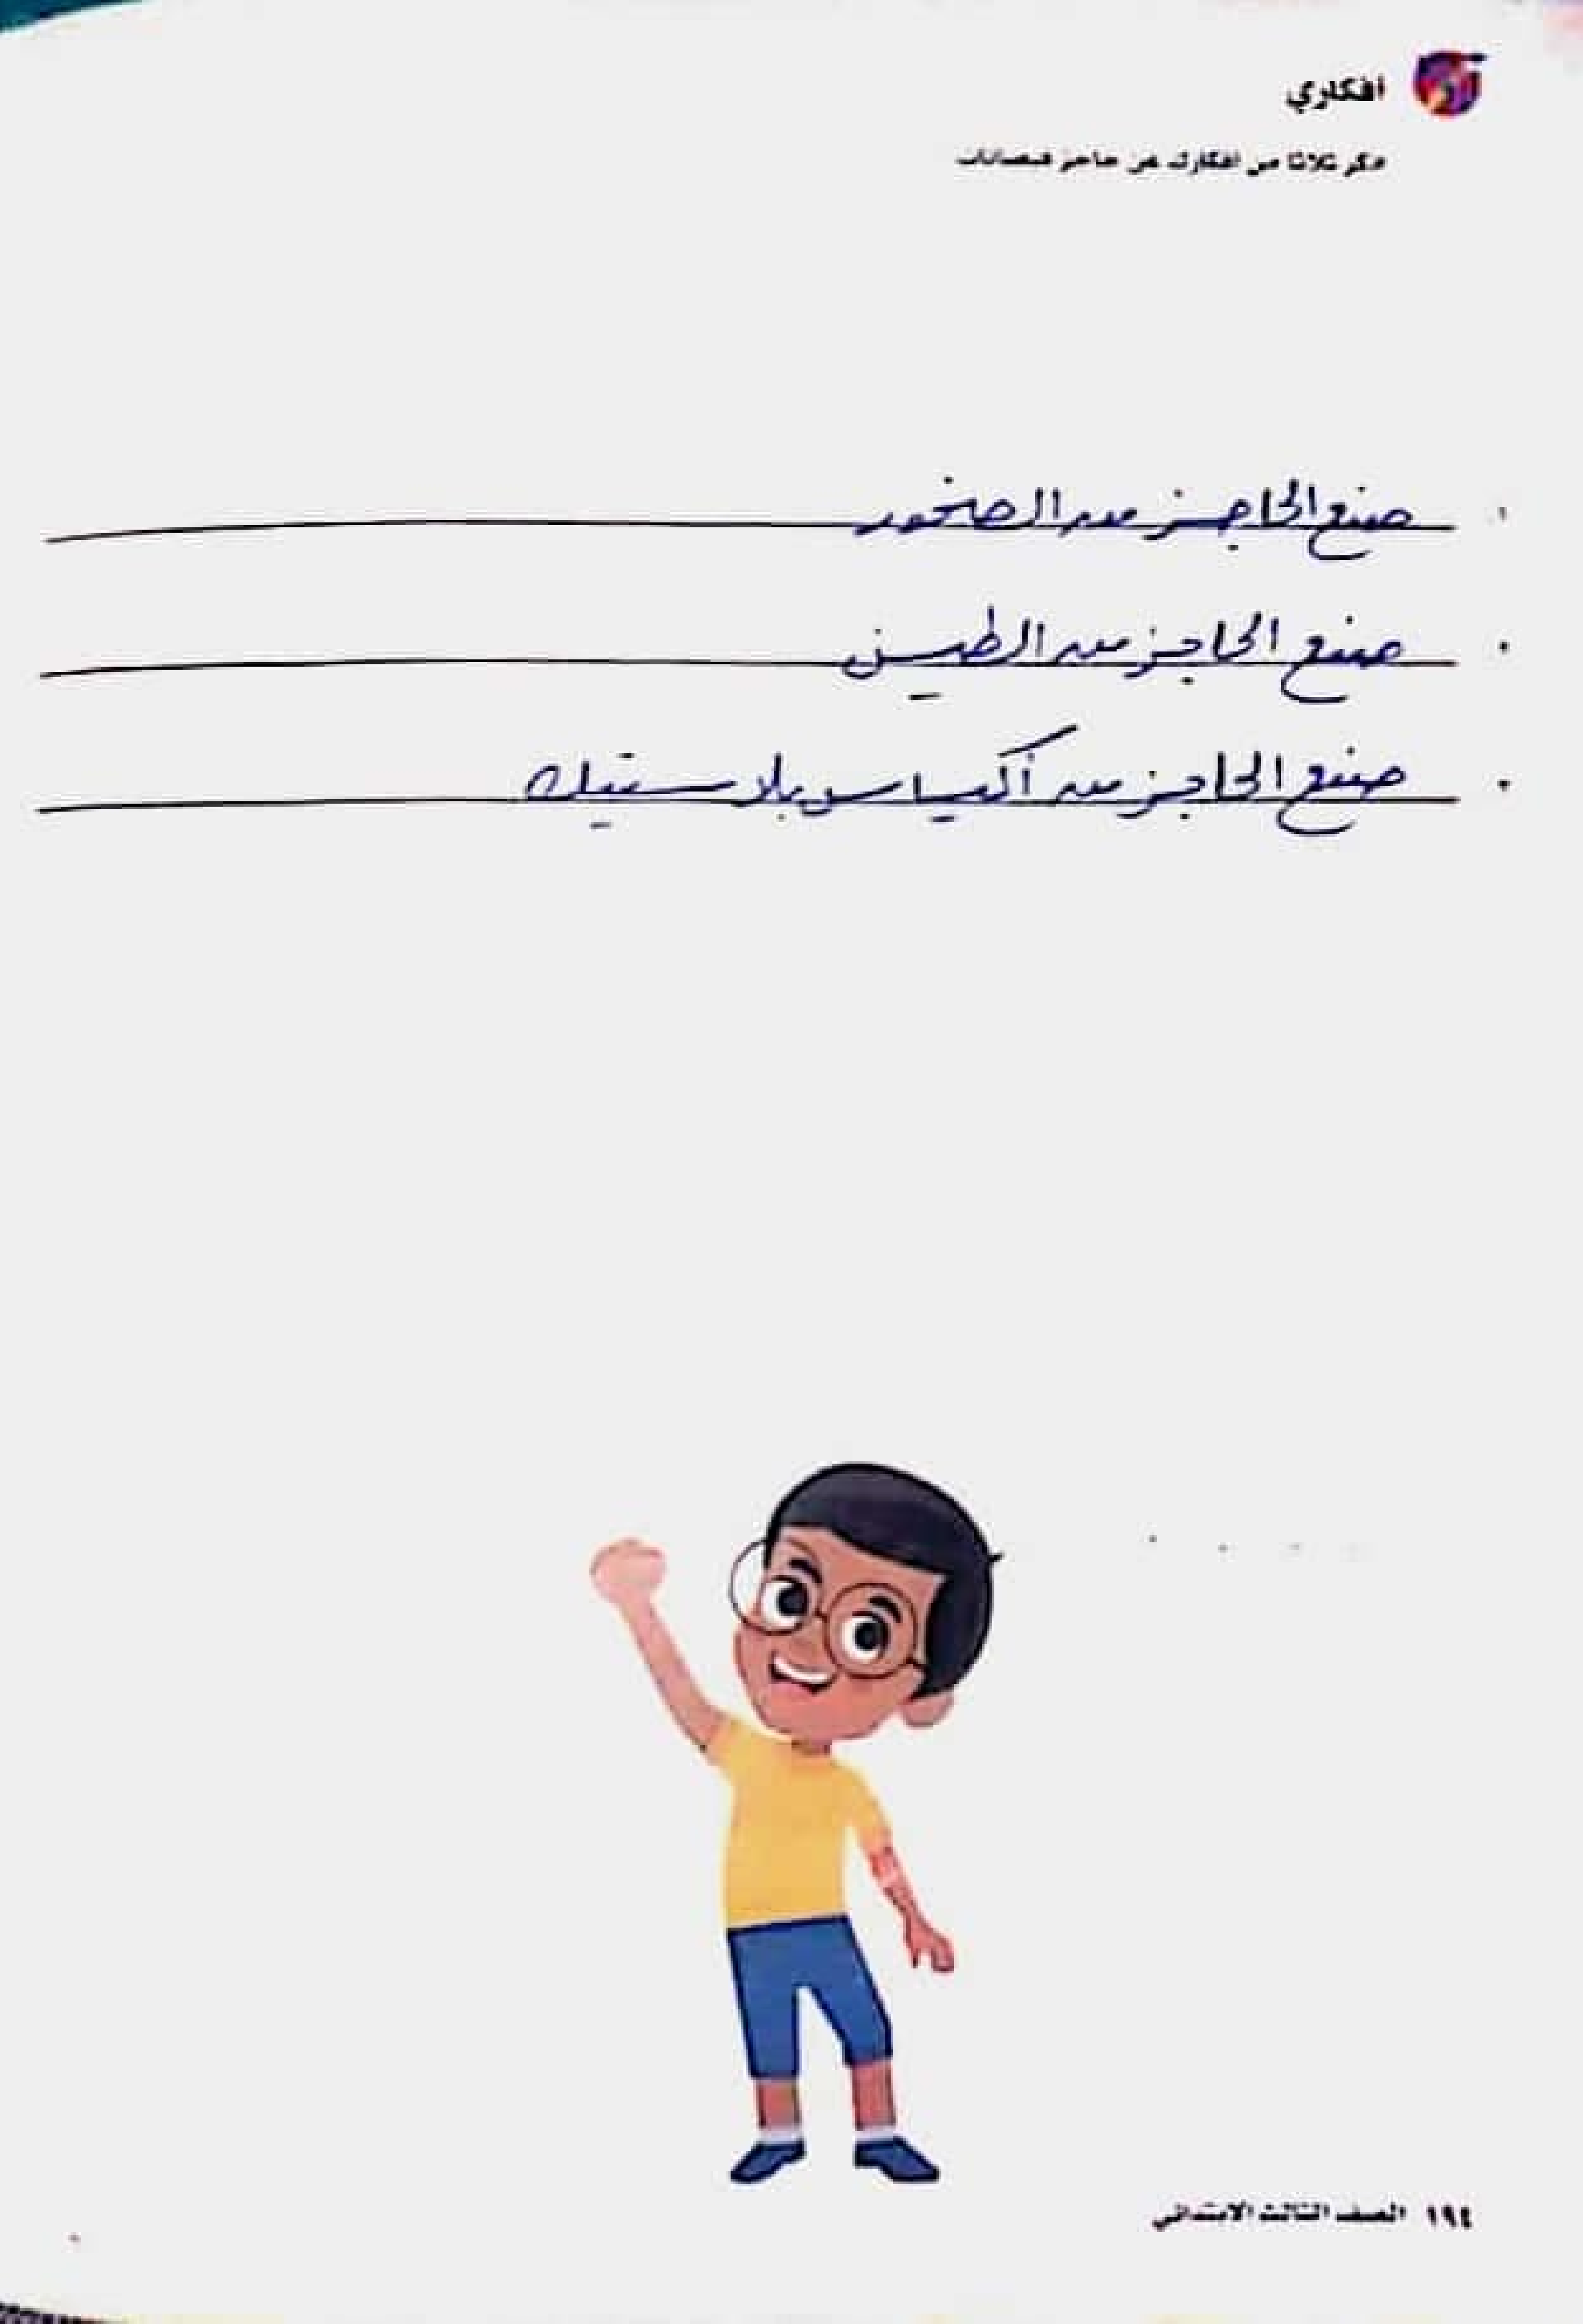 أفكاري
اذكر ثلاثا من أفكارك عن حاجز فيضانات
صنع الحاجز من الصخور
صنع الحاجز من الطين
صنع الحاجز من أكياس بلاستيك
١٩٤ الصف الثالث الابتدائي